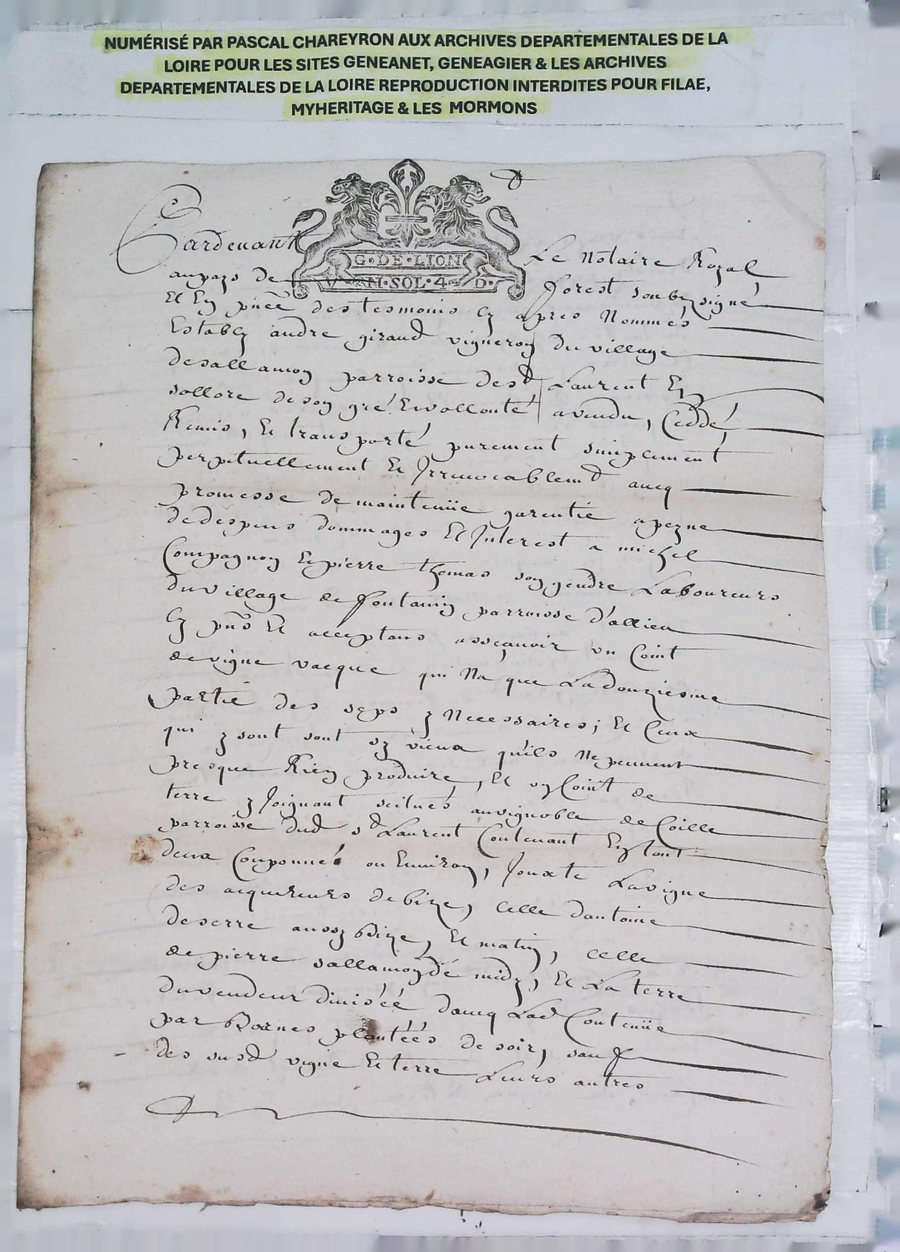 NUMÉRISÉ PAR PASCAL CHAREYRON AUX ARCHIVES DEPARTEMENTALES DE LA
LOIRE POUR LES SITES GENEANET, GENEAGIER & LES ARCHIVES
DEPARTEMENTALES DE LA LOIRE REPRODUCTION INTERDITES POUR FILAE,
MYHERITAGE & LES MORMONS
G·DE·LION
V N·SOL·4·D·
Pardevant Le Notaire Royal
au pays de forest soubzsigné
Et En pñce des tesmoins cy apres Nommés
Estably andre giraud vigneron du village
de sallamon parroisse de st Laurent En
sollore de son gré Et vollonté a vendu, Ceddé
Remis, Et transporté purement simplement
perpetuellement Et Irrevocablemt avecq
promesse de maintenüe garentie a peyne
de despens dommages Et Interest a michel
Compagnon Et pierre thomas son gendre Laboureurs
du village de fontanin parroisse d'allieu
Cy pñs Et acceptans assçavoir un Coint
de vigne vacque qui Na que La douziesme
partie des seps y Necessaires; Et Ceux
qui y sont sont sy vieux qu'ils Ne peuvent
presque Rien produire, Et un Coint de
terre y Joignant scitués au vignoble de Coille
parroisse dud st Laurent Contenant En tout
deux Couponnés ou Environ, Jouxte La vigne
des acquereurs de bize, celle d'antoine
deserre aussy bize, Et matin, celle
de pierre sallamon de midy, Et La terre
du vendeur divisée d'avecq Lad Contenüe
par Bornes plantées de soir, sauf
des susd vigne Et terre Leurs autres